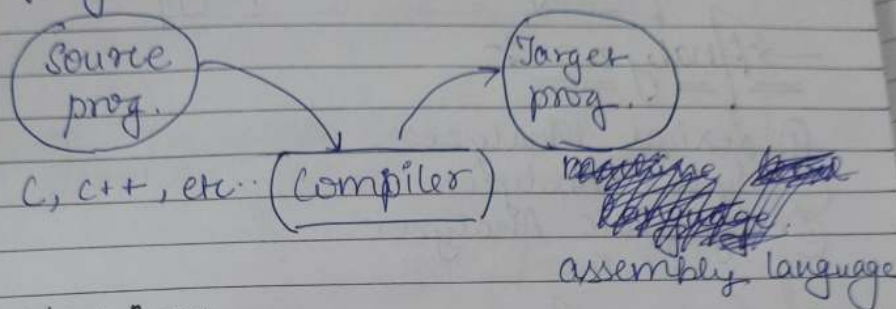 Source
prog.
Target
prog.
C, C++, etc..
Compiler
assembly language